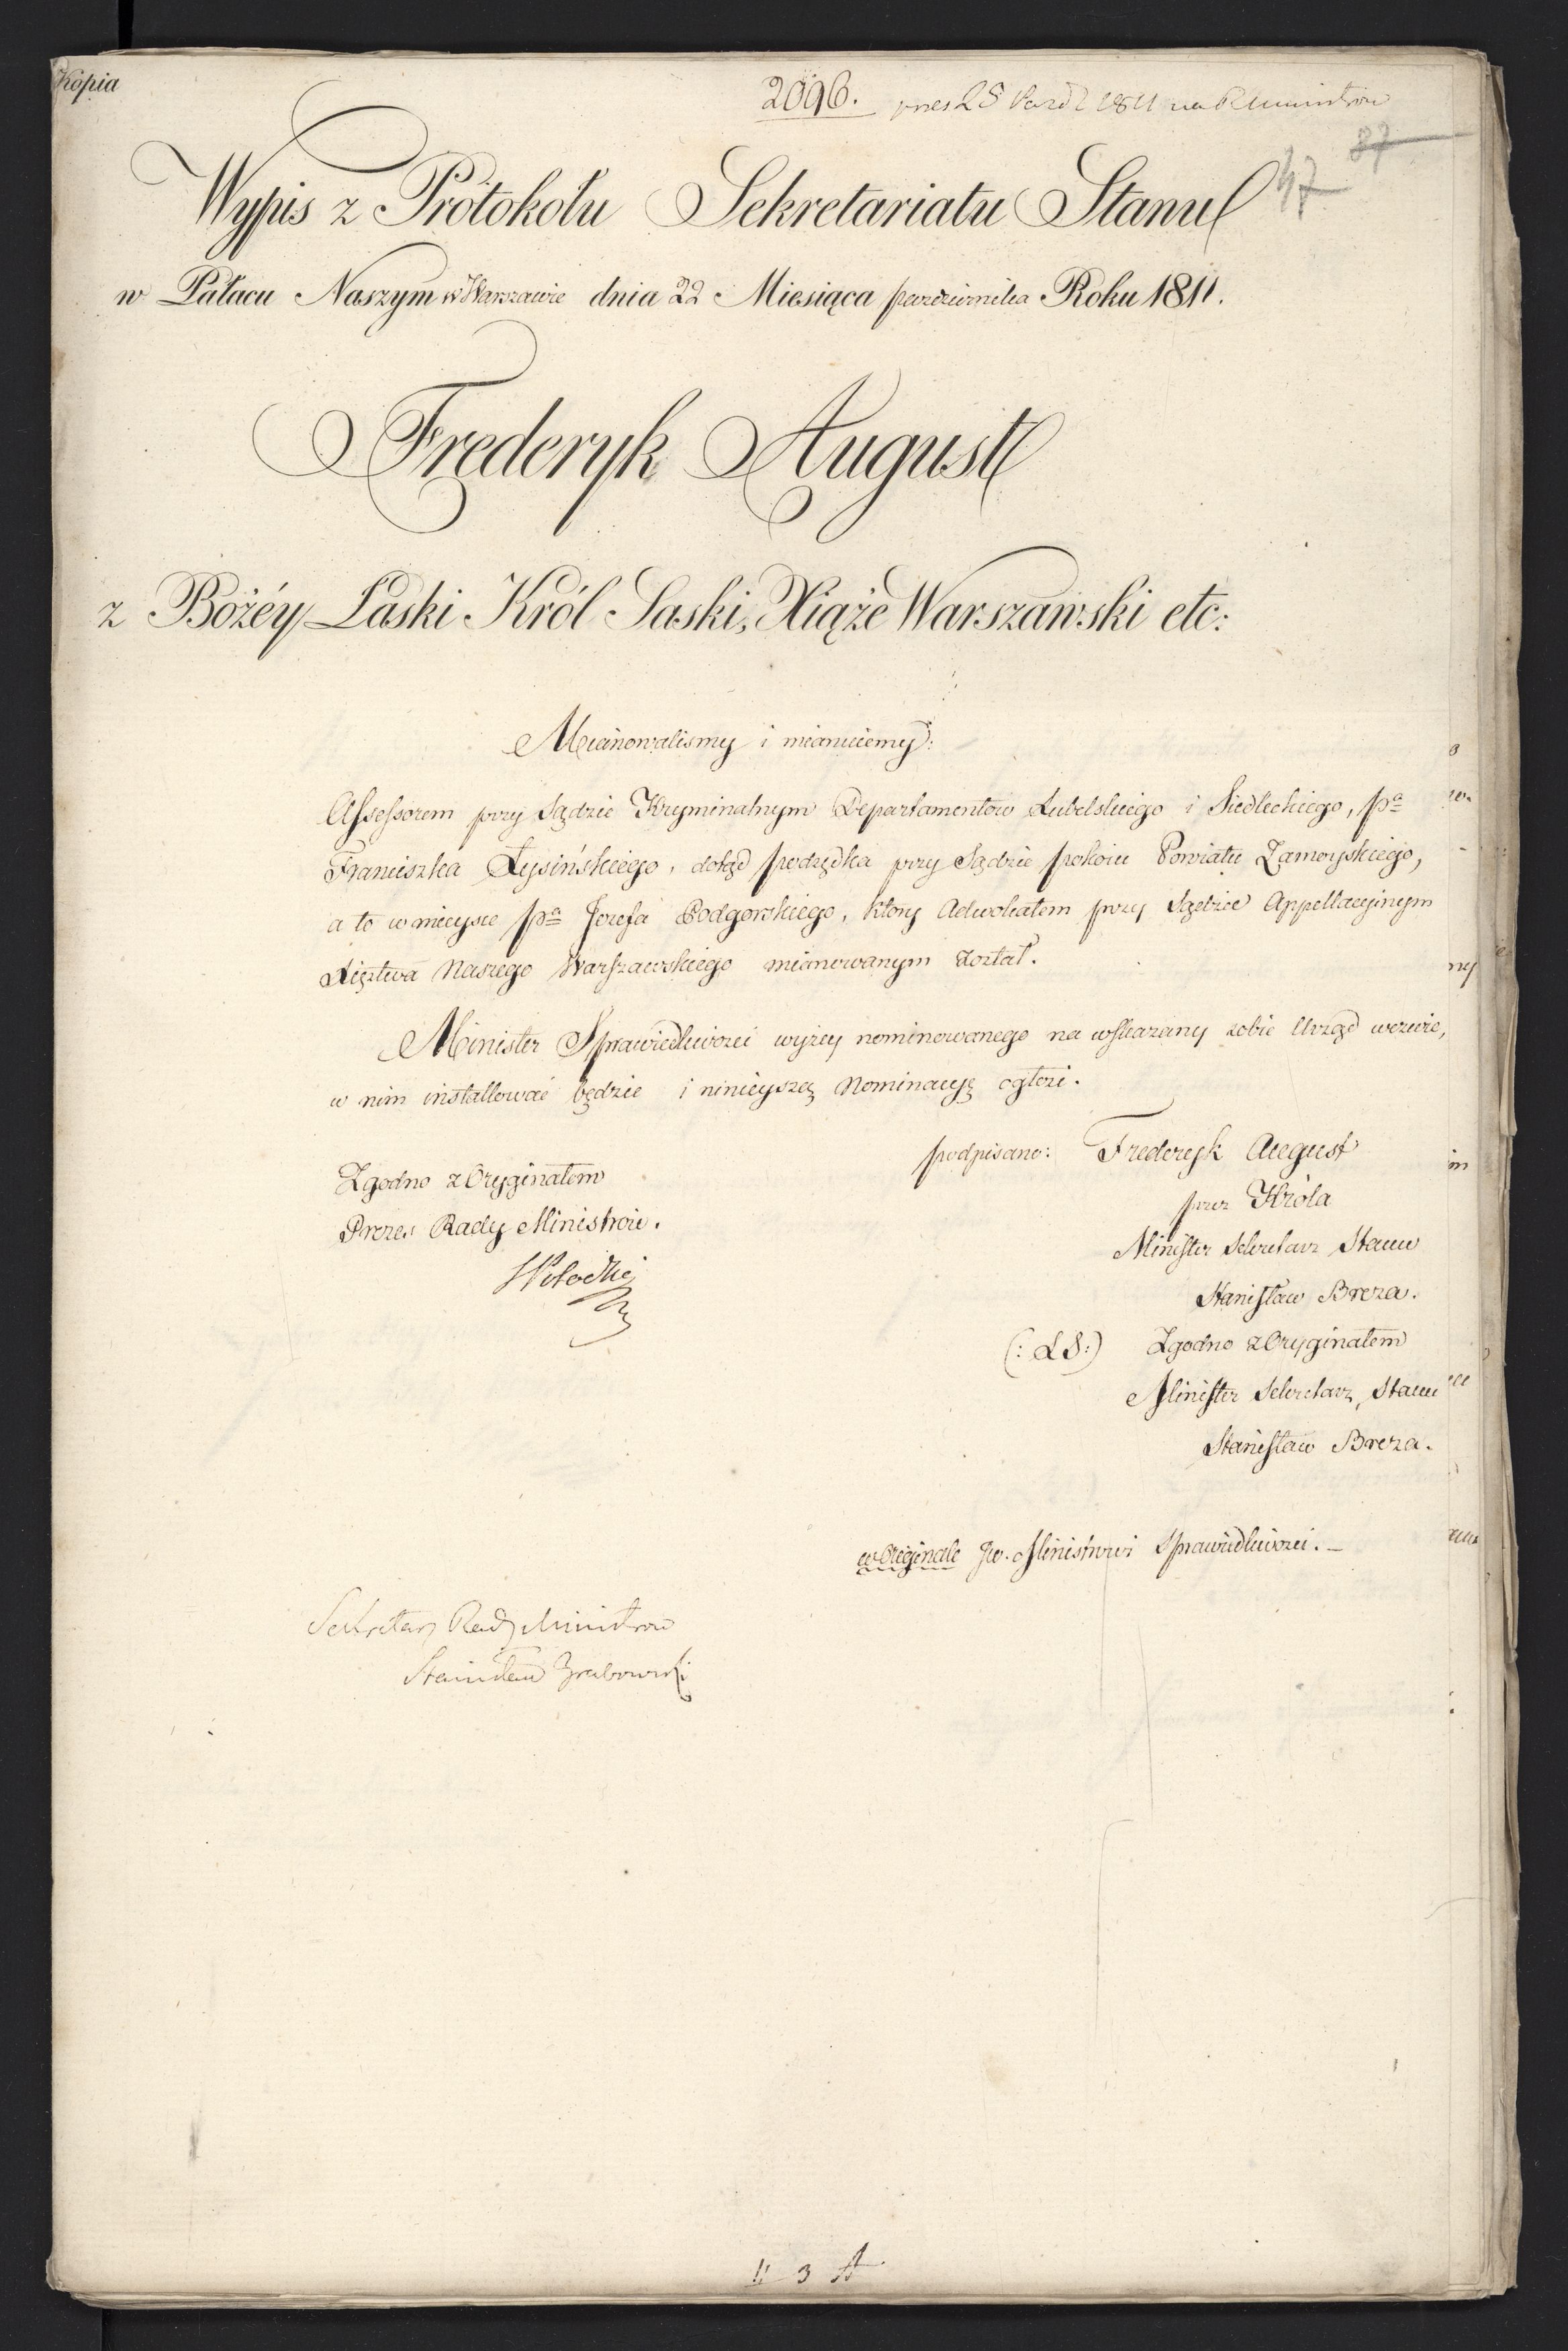 Kopia
2096. pres 28 Paźd 1811 na R Ministrow
87
47
Wypis z Protokołu Sekretariatu Stanu
w Pałacu Naszym w Warszawie dnia 22 Miesiąca pazdziernika Roku 1811.
Frederyk August
z Bożéy Łaski Król Saski, Xiąże Warszawski etc:
Mianowalismy i mianuiemy:
Assessorem przy Sądzie Kryminalnym Departamentow Lubelskiego i Siedleckiego, pa
Franciszka Łysińskiego, dotąd podsędka przy Sądzie pokoiu Powiatu Zamoyskiego,
a to w mieysce pa Jozefa Podgorskiego, ktory Adwokatem przy Sądzie Appellacyinym
Xięztwa Naszego Warszawskiego mianowanym został.
Minister Sprawiedliwosci wyżey nominowanego na wskazany sobie Urząd wezwie,
w nim installować będzie i ninieyszą Nominacyą ogłosi.
podpisano: Frederyk August
przez Króla
Minister Sekretarz Stanu
Stanisław Breza.
(: LS:) Zgodno z Oryginałem
Minister Sekretarz Stanu
Stanisław Breza.
Zgodno z Oryginałem
Prezes Rady Ministrów.
w Originale Jw. Ministrowi Sprawiedliwosci. –
Sekretarz Rady Ministrow
Stanisław Grabowski